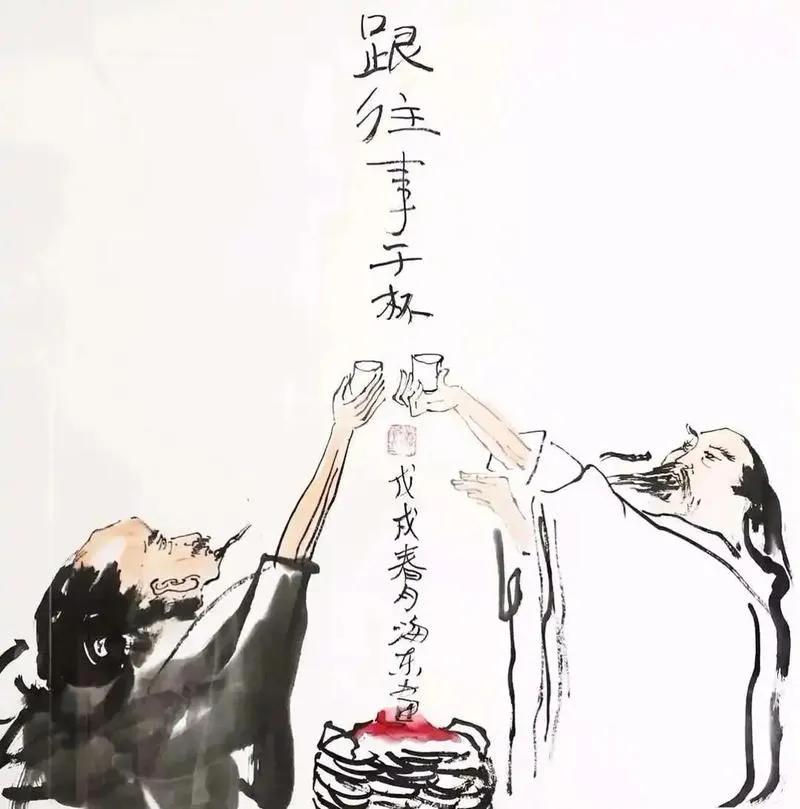 跟往事干杯
戊戌春月海东画